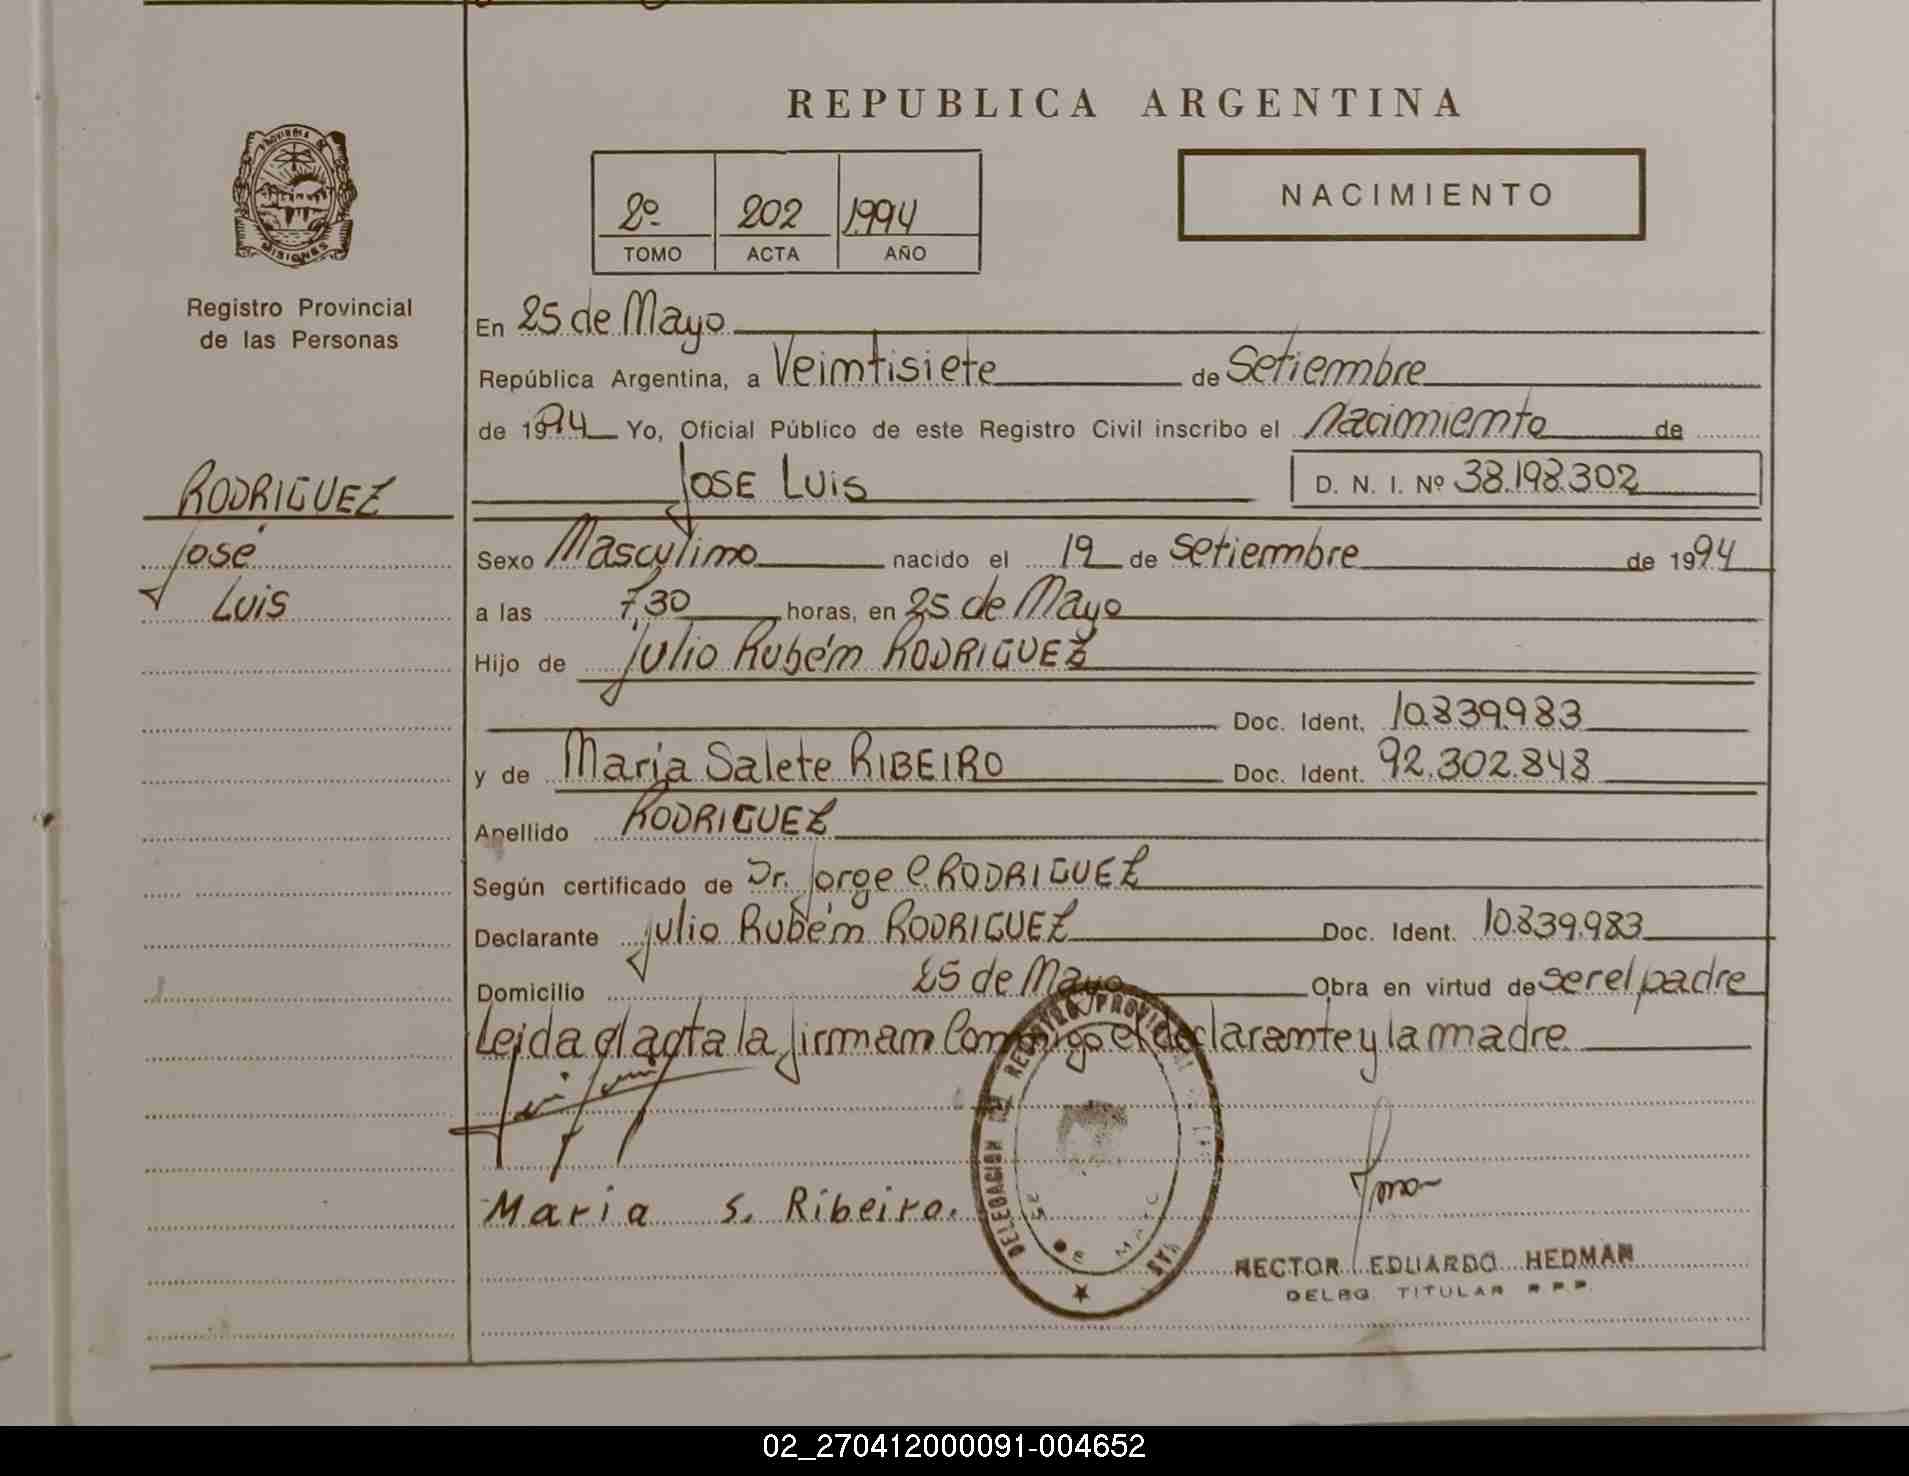 REPUBLICA ARGENTINA
PROVINCIA DE
MISIONES
Registro Provincial
de las Personas
2º 202 1994
TOMO ACTA AÑO
NACIMIENTO
En 25 de Mayo
República Argentina, a Veintisiete de Setiembre
de 1994 Yo, Oficial Público de este Registro Civil inscribo el Nacimiento de
JOSE LUIS D. N. I. Nº 38.198.302
RODRIGUEZ
José
Luis
Sexo Masculino nacido el 19 de Setiembre de 1994
a las 7,30 horas, en 25 de Mayo
Hijo de Julio Rubén RODRIGUEZ
Doc. Ident. 10.839.983
y de Maria Salete RIBEIRO Doc. Ident. 92.302.848
Apellido RODRIGUEZ
Según certificado de Dr. Jorge C. RODRIGUEZ
Declarante Julio Rubén RODRIGUEZ Doc. Ident. 10.839.983
Domicilio 25 de Mayo Obra en virtud de ser el padre
Leida el acta la firman Conmigo el declarante y la madre
Maria S. Ribeiro.
DELEGACION DEL REGISTRO PROVINCIAL
25 DE MAYO
HECTOR EDUARDO HEDMAN
DELEG. TITULAR R.P.P.
02_270412000091-004652